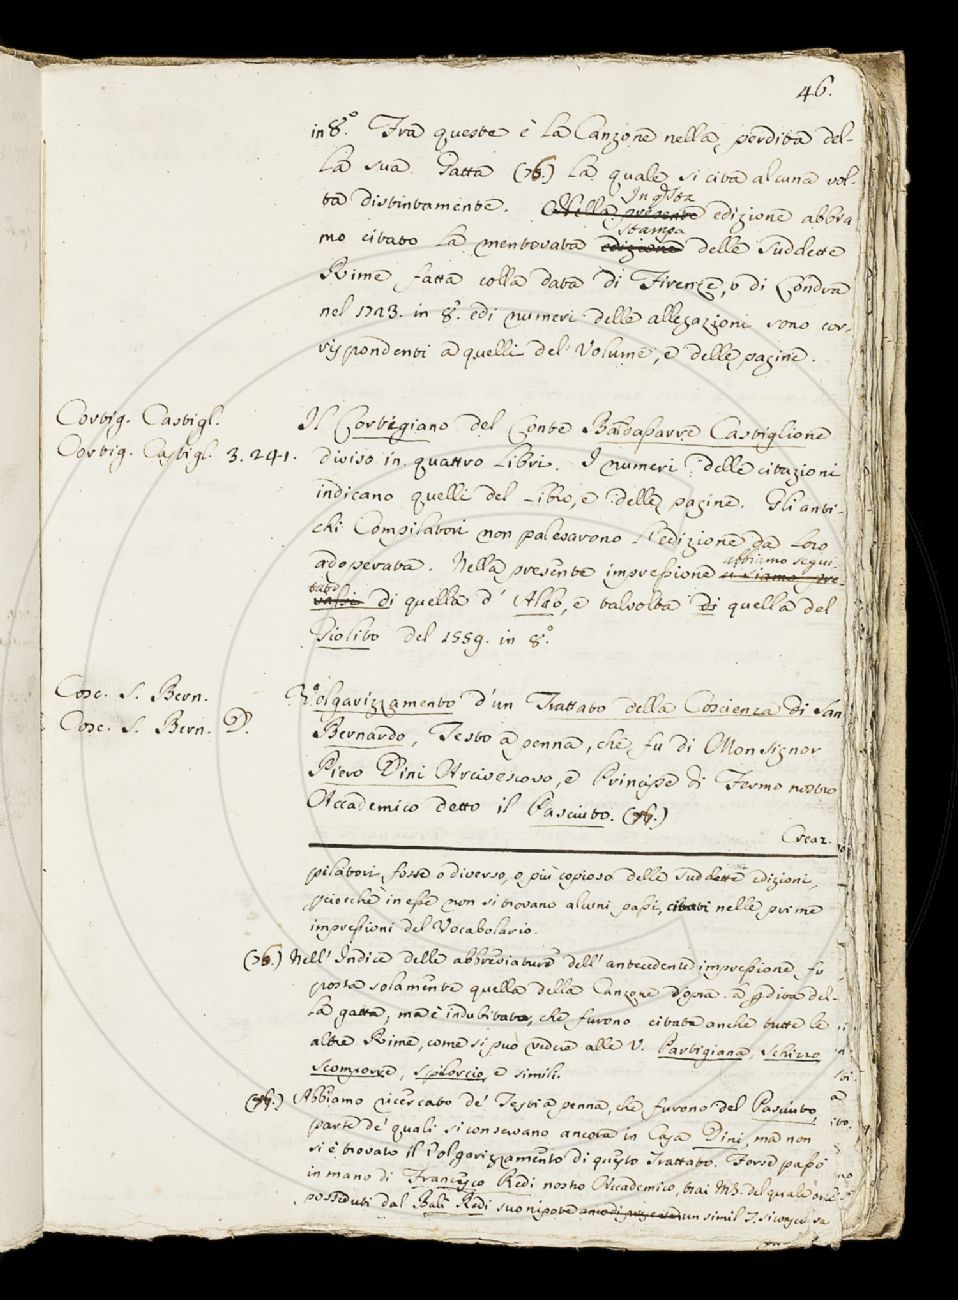 46.
in 8.° Fra queste è la Canzone nella perdita del-
la sua Gatta (76.) la quale si cita alcuna vol-
ta distintamente. Nella presente In qsta edizione abbia
mo citato la mentovata edizione stampa delle suddette
Rime fatta colla data di Firenze, o di Londra
nel 1723. in 8.° ed i numeri delle allegazioni sono cor-
rispondenti a quelli del Volume, e delle pagine.
Cortig. Castigl.
Cortig. Castigl. 3. 241.
Il Cortigiano del Conte Baldasarre Castiglione
diviso in quattro Libri. I numeri delle citazioni
indicano quelli del Libro, e delle pagine. Gli anti-
chi Compilatori non palesarono l'edizione da loro
adoperata. Nella presente impressione abbiamo segui-
tato di quella d' Aldo, e talvolta di quella del
Giolito del 1559. in 8.°
Cosc. S. Bern.
Cosc. S. Bern. D.
Volgarizzamento d'un Trattato della Coscienza di San
Bernardo, Testo a penna, che fu di Monsignor
Piero Dini Arcivescovo, e Principe di Fermo nostro
Accademico detto il Pasciuto.
Crear.
pilatori fosse o diverso, o più copioso delle suddette edizioni,
pciocchè in esse non si trovano alcuni passi, citati nelle prime
impressioni del Vocabolario.
(76.) Nell' Indice delle abbreviature dell' antecedente impressione fu
posta solamente quella della Canzone d'opra a pdita del-
la gatta, ma è indubitato, che furono citate anche tutte le
altre Rime, come si può vedere alle V. Partigiana, Schizzo
Scomporre, Spilorcio, e simili.
Abbiamo ricercato de' Testi a penna, che furono del Pasciuto,
parte de' quali si conservano ancora in Casa Dini, ma non
si è trovato il Volgarizzamento di questo Trattato. Forse passò
in mano di Francesco Redi nostro Accademico, trai MS. del quale ora
posseduti dal Balì Redi suo nipote un simil T. si conserva